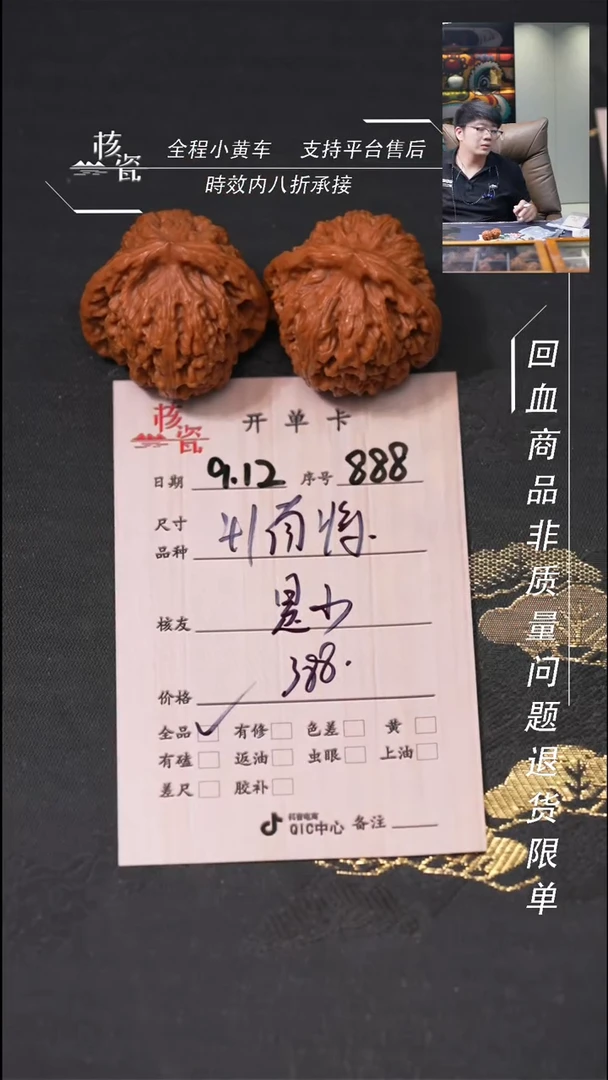 核瓷
全程小黄车 支持平台售后
時效内八折承接
回血商品非质量问题退货限单
核瓷
开单卡
日期 9.12 序号 888
尺寸
品种
核友
价格 388.
全品 有修 色差 黄
有磕 返油 虫眼 上油
差尺 胶补
抖音电商
QIC中心 备注